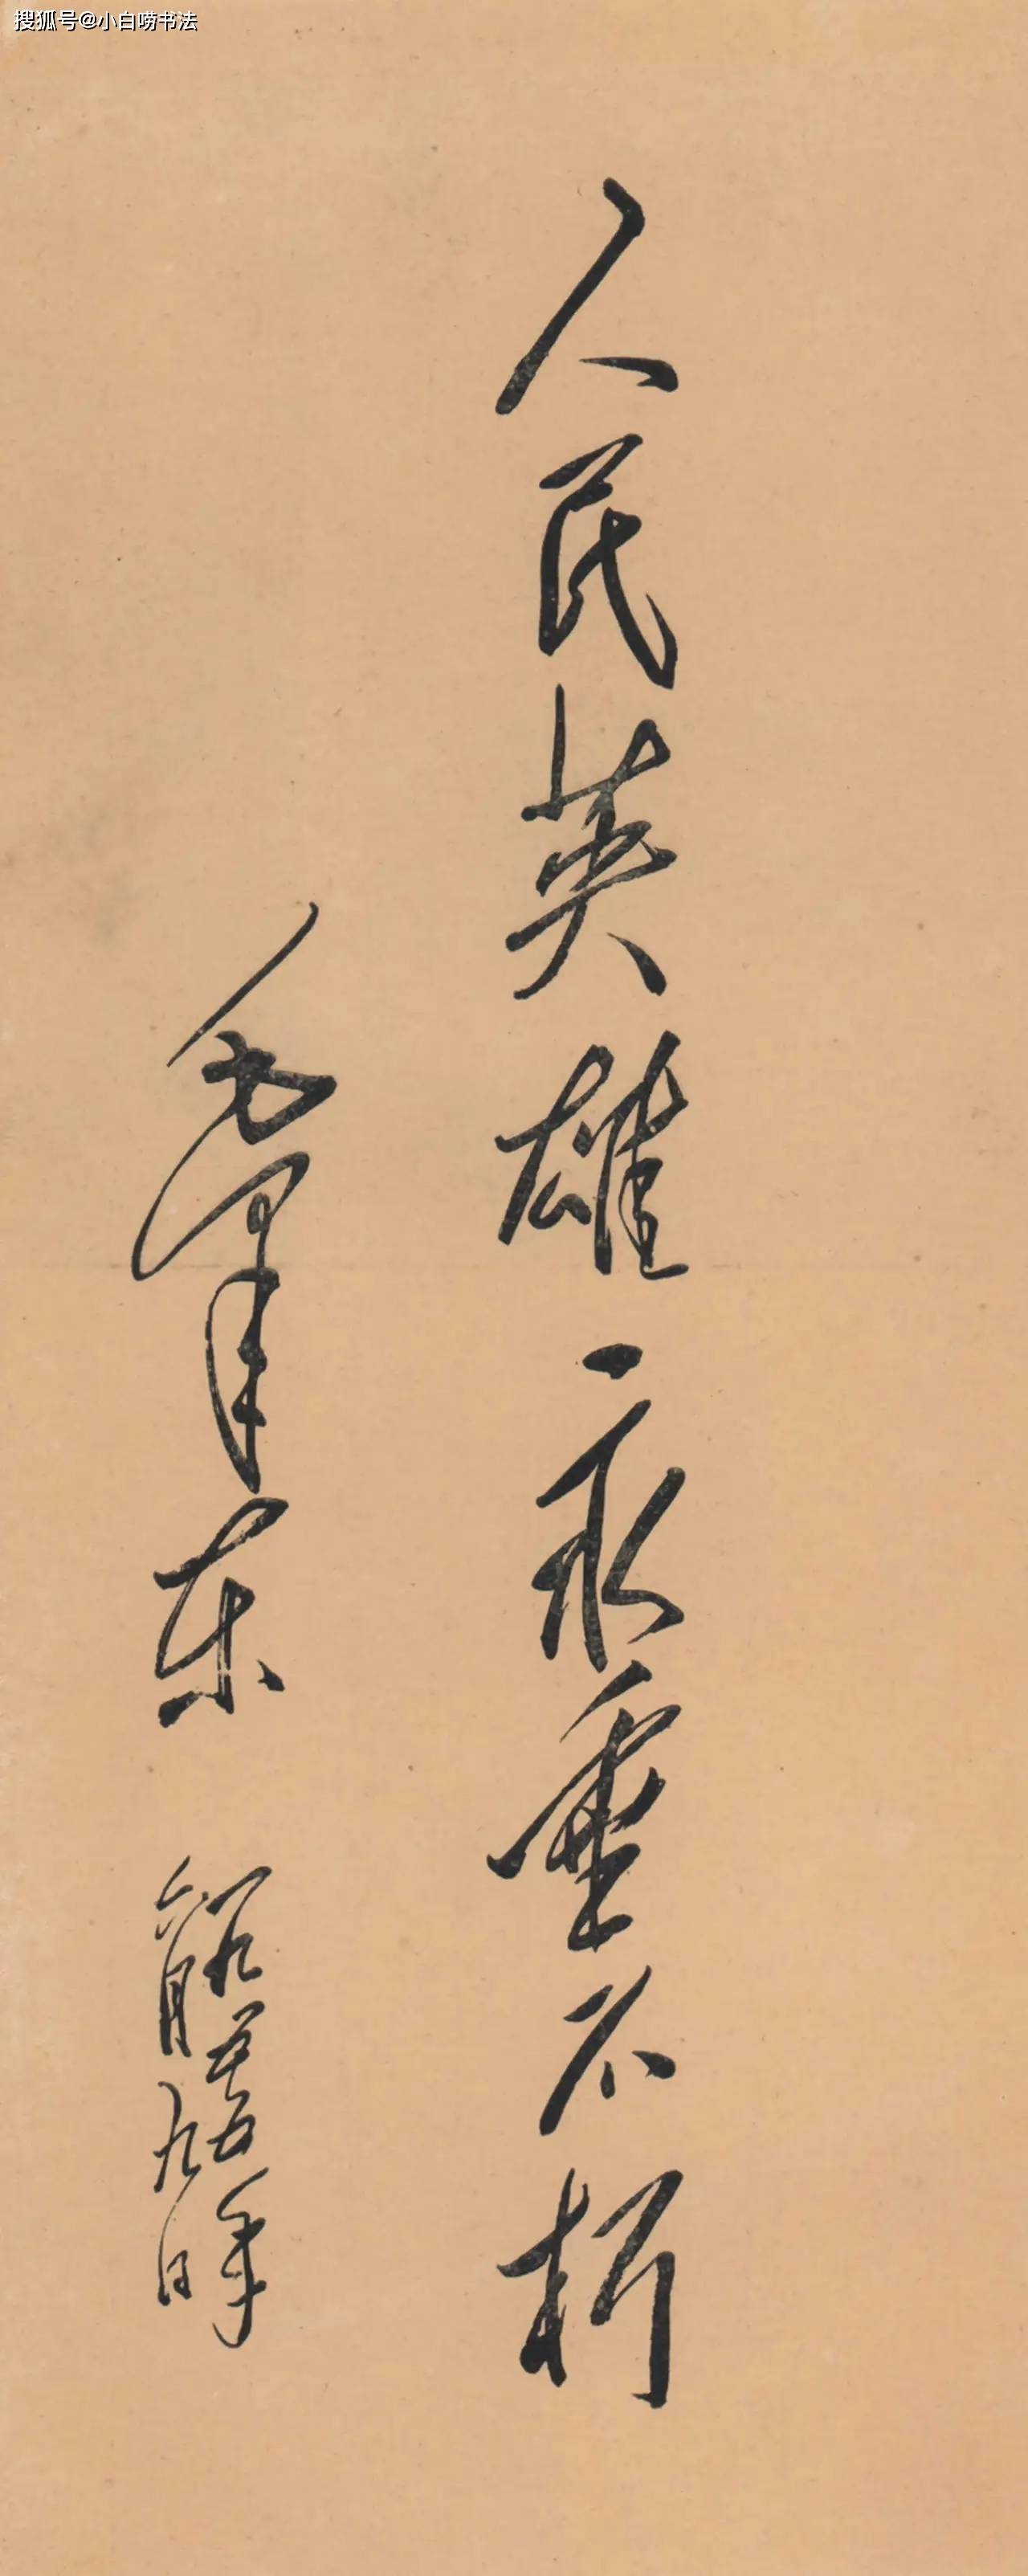 搜狐号@小白唠书法
人民英雄永垂不朽
毛泽东
一九五五年
六月九日